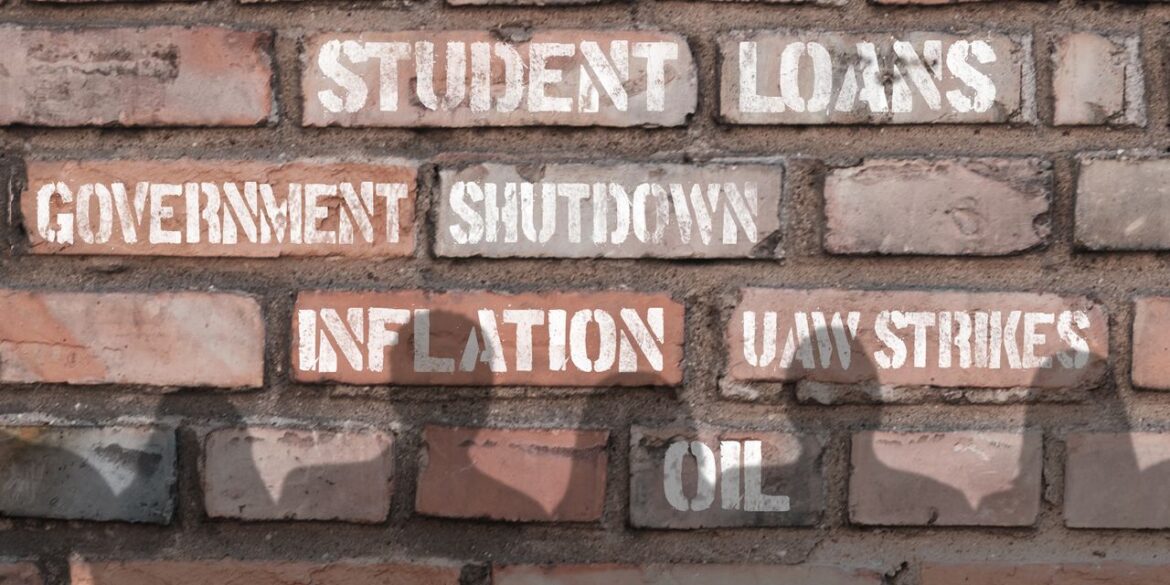 STUDENT LOANS
GOVERNMENT SHUTDOWN
INFLATION UAW STRIKES
OIL